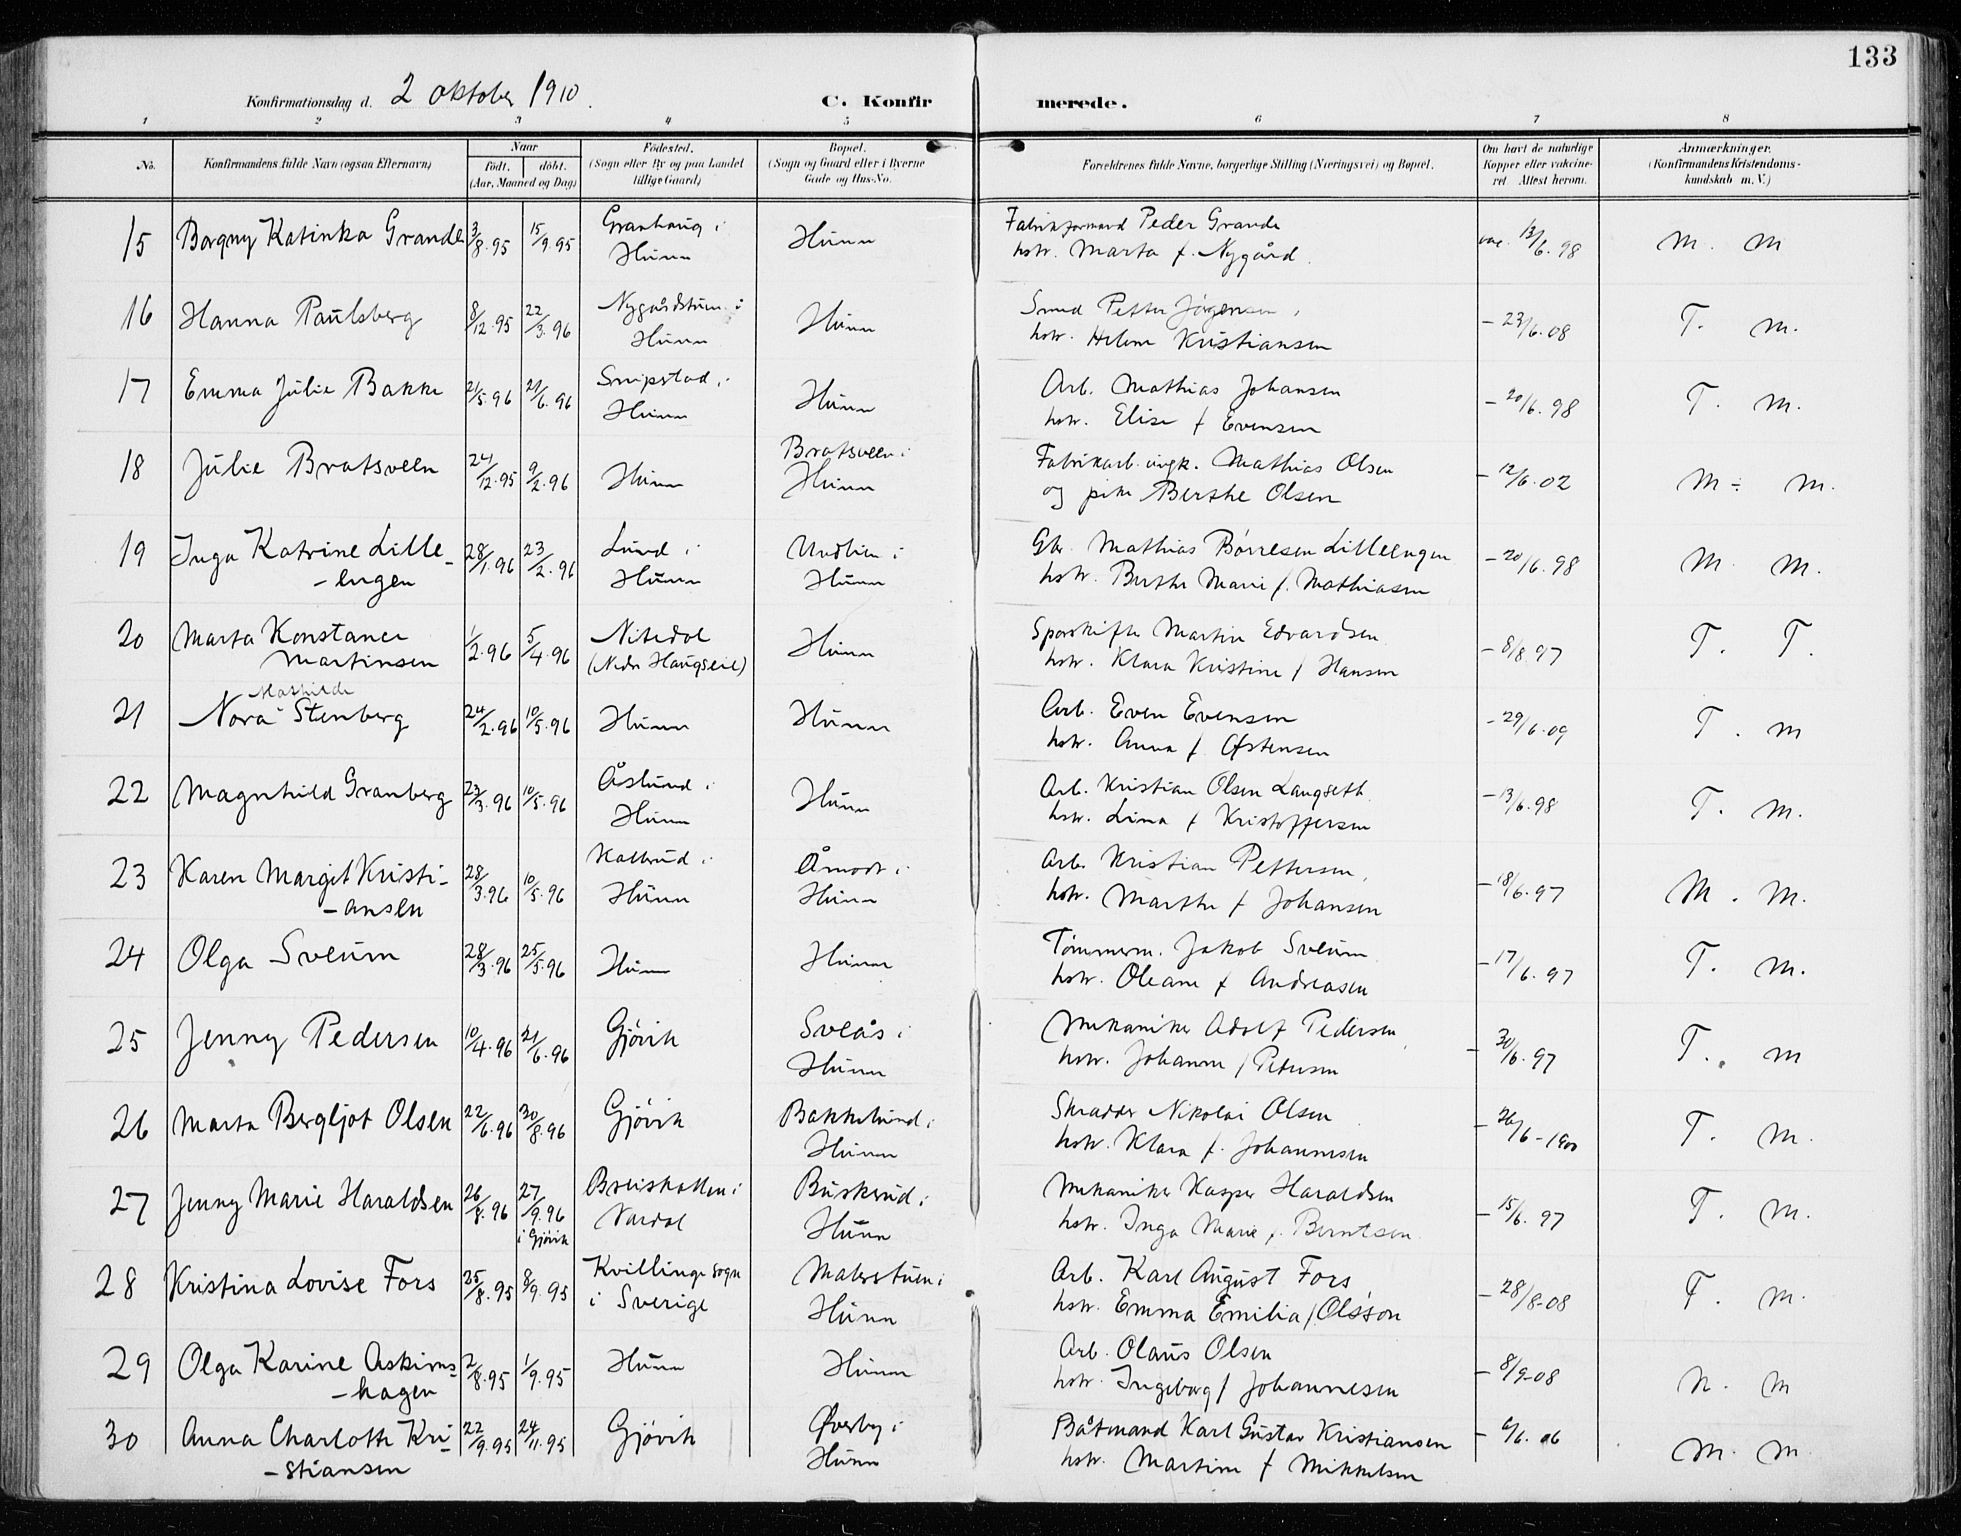 133
Konfirmationsdag d. 2 oktober 1910.
C. Konfirmerede.
1 2 3 4 5 6 7 8
No. Konfirmandens fulde Navn (ogsaa Efternavn) Naar født. døbt. (Aar, Maaned og Dag) Fødested. (Sogn eller By og paa Landet tillige Gaard) Bopæl. (Sogn og Gaard eller i Byerne Gade og Hus-No. Forældrenes fulde Navne, borgerlige Stilling (Næringsvei) og Bopæl. Om havt de naturlige Kopper eller vakcineret. Attest herom. Anmærkninger. (Konfirmandens Kristendomskundskab m. V.)
15 Borgny Katinka Grande 3/8.95 15/9.95 Granhaug i Hunn Hunn Fabrikformand Peder Grande
hstr. Marta f. Nygård vac. 13/6.98 M. M
16 Hanna Paulsberg 8/12.95 22/3.96 Nygårdstuen i Hunn Hunn Smed Petter Jørgensen,
hstr. Helene Kristiansen - 23/6.08 T. M.
17 Emma Julie Bakke 21/5.96 21/6.96 Snipstad i Hunn Hunn Arb. Mathias Johansen
hstr. Elise f Evensen - 20/6.98 T. M.
18 Julie Bratsveen 24/12.95 9/2.96 Hunn Bratsveen i Hunn Fabrikarb. ungk. Mathias Olsen
og pike Berthe Olsen - 12/6.02 M÷ M.
19 Inga Katrine Lille-
-engen 28/1.96 23/2.96 Lund i Hunn Undlien i Hunn Gbr. Mathias Børresen Lilleengen
hstr. Berthe Marie f. Mathiasen - 20/6.98 M. M.
20 Marta Konstance
Martinsen 1/2.96 5/4.96 Nitedal (Nedre Haugseie) Hunn Sporskifter Martin Edvardsen
hstr. Klara Kristine f Hansen - 8/8.97 T. T.
21 Nora Mathilde Stenberg 24/2.96 10/5.96 Hunn Hunn Arb. Even Evensen
hstr. Anna f. Østensen - 29/6.09 T. M
22 Magnhild Granberg 23/3.96 10/5.96 Åslund i Hunn Hunn Arb. Kristian Olsen Langseth
hstr. Lina f Kristoffersen - 13/6.98 T. M.
23 Karen Margit Kristi-
-ansen 28/3.96 10/5.96 Kallerud i Hunn Åmodt i Hunn Arb. Kristian Pettersen,
hstr. Marthe f Johansen - 18/6.97 M. M.
24 Olga Sveum 28/3.96 25/5.96 Hunn Hunn Tømmerm. Jakob Sveum
hstr. Oleane f Andreasen - 17/6.97 T. M.
25 Jenny Pedersen 10/4.96 21/6.96 Gjøvik Sveås i Hunn Mekaniker Adolf Pedersen,
hstr. Johanne f Petersen - 30/6.97 T. M
26 Marta Bergljot Olsen 22/6.96 30/8.96 Gjøvik Bakkelund i Hunn Skrædder Nikolai Olsen
hstr. Klara f. Johannesen - 26/6-1900 T. M.
27 Jenny Marie Haraldsen 26/8.96 27/9.96 i Gjøvik Breiskallen i Vardal Buskerud i Hunn Mekaniker Kasper Haraldsen
hstr. Inga Marie f. Berntsen - 15/6.97 T. M.
28 Kristina Lovise Fors 25/8.95 8/9.95 Kvillinge sogn i Sverige Malerstuen i Hunn Arb. Karl August Fors
hstr. Emma Emilia f. Olsson - 28/8-08 T. M.
29 Olga Karine Askims-
-hagen 2/8.95 1/9.95 Hunn Hunn Arb. Olaus Olsen
hstr. Ingeborg f Johannesen - 8/9-08 N. M
30 Anna Charlotte Kri-
-stiansen 22/9.95 24/11.95 Gjøvik Øverby i Hunn Båtmand Karl Gustav Kristiansen
hstr. Martine f Mikkelsen - 6/6.06 M. M.